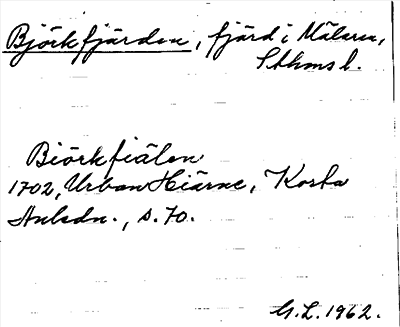 Björkfjärden, fjärd i Mälaren,
Sthms l.
Biörkfiälen
1702, Urban Hiärne, Korta
Anledn., s. 70.
G.L. 1962.